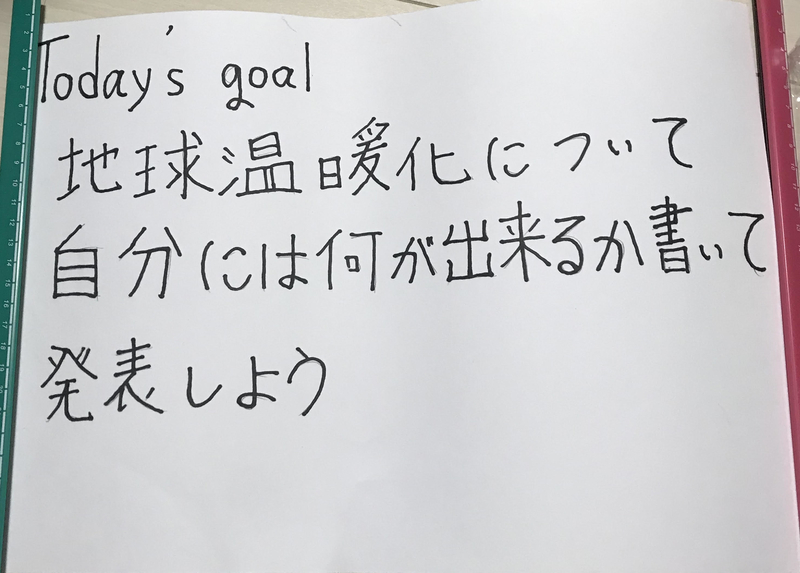 Today's goal
地球温暖化について
自分には何が出来るか書いて
発表しよう